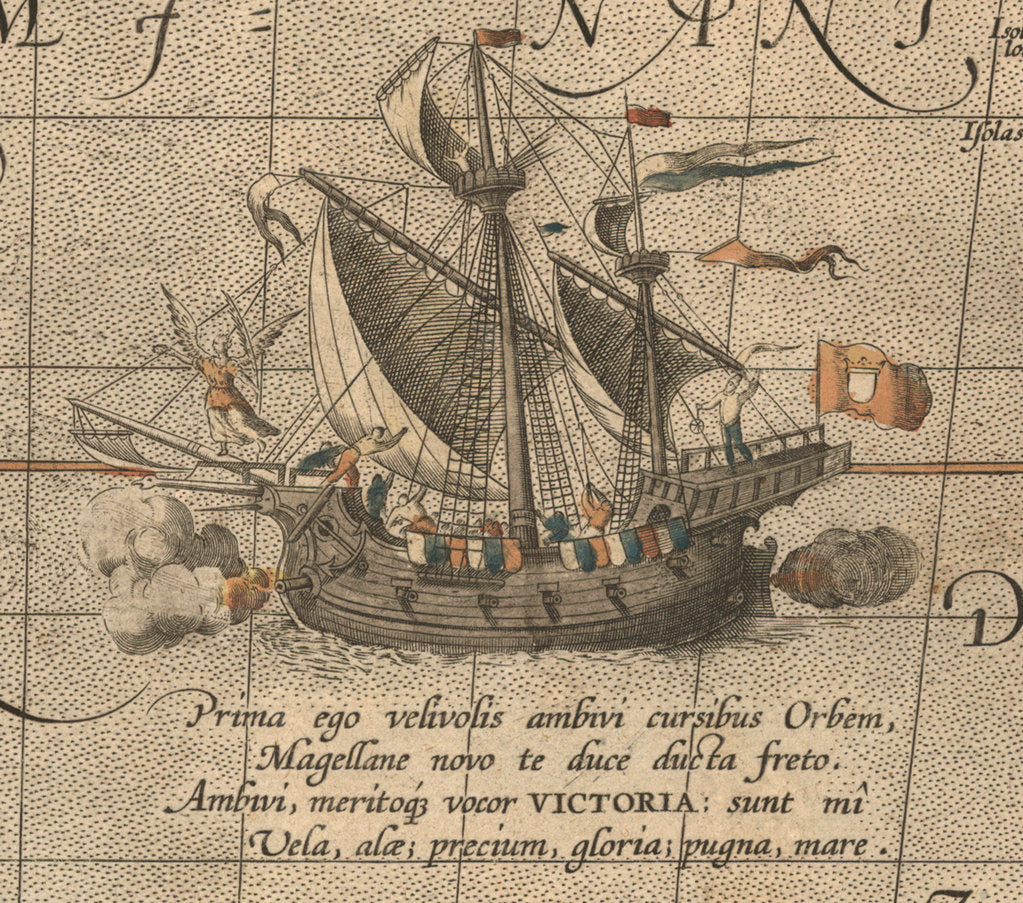 Isolas
Prima ego velivolis ambivi cursibus Orbem,
Magellane novo te duce ducta freto.
Ambivi, meritoqꝫ vocor VICTORIA: sunt mî
Vela, alæ; precium, gloria; pugna, mare.